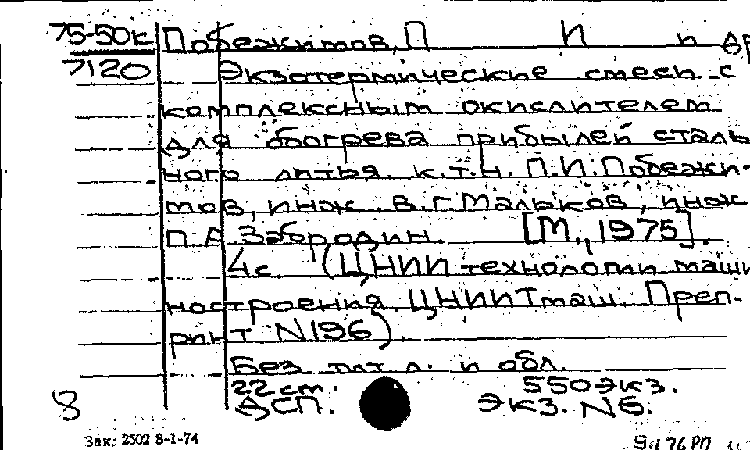 75-50к Побежимов, П И и др
7120 Экзотермические смеси с
комплексным окислителем
для обогрева прибылей сталь
ного литья. к.т.н. П.И. Побежи-
мов, инж. В.Г. Малыков, инж
П.А Забродин. [М., 1975].
4с (ЦНИИ технологии маши
ностроения ЦНИИТмаш. Преп-
ринт N196)
Без тит. л. и обл.
22 см. 550 экз.
8 ДСП. Экз. N6.
Зак. 2502 8-1-74